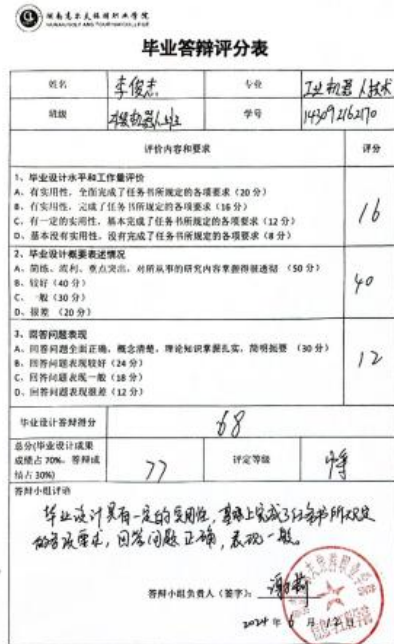 毕业答辩评分表
姓名 李俊志 专业 工业机器人技术
班级 学号 143092162170
评价内容和要求 评分
1、毕业设计水平和工作量评价
A、有实用性，全面完成了任务书所规定的各项要求（20 分）
B、有实用性，完成了任务书所规定的各项要求（16 分）
C、有一定的实用性，基本完成了任务书所规定的各项要求（12 分）
D、基本没有实用性，没有完成了任务书所规定的各项要求（8 分）
16
2、毕业设计概要表述情况
A、简练、流利、重点突出，对所从事的研究内容掌握得很透彻 （50 分）
B、较好（40 分）
C、一般（30 分）
D、很差 （20 分）
40
3、回答问题表现
A、回答问题全面正确、概念清楚、理论知识掌握扎实，简明扼要 （30 分）
B、回答问题表现较好（24 分）
C、回答问题表现一般（18 分）
D、回答问题表现很差（12 分）
12
毕业设计答辩得分 68
总分(毕业设计成果
成绩占 70%、答辩成
绩占 30%)
77 评定等级 中等
答辩小组评语
毕业设计具有一定的实用性，基本上完成了任务书所规定
的各项要求，回答问题正确，表现一般。
答辩小组负责人（签字）：
2024 年 6 月 12 日